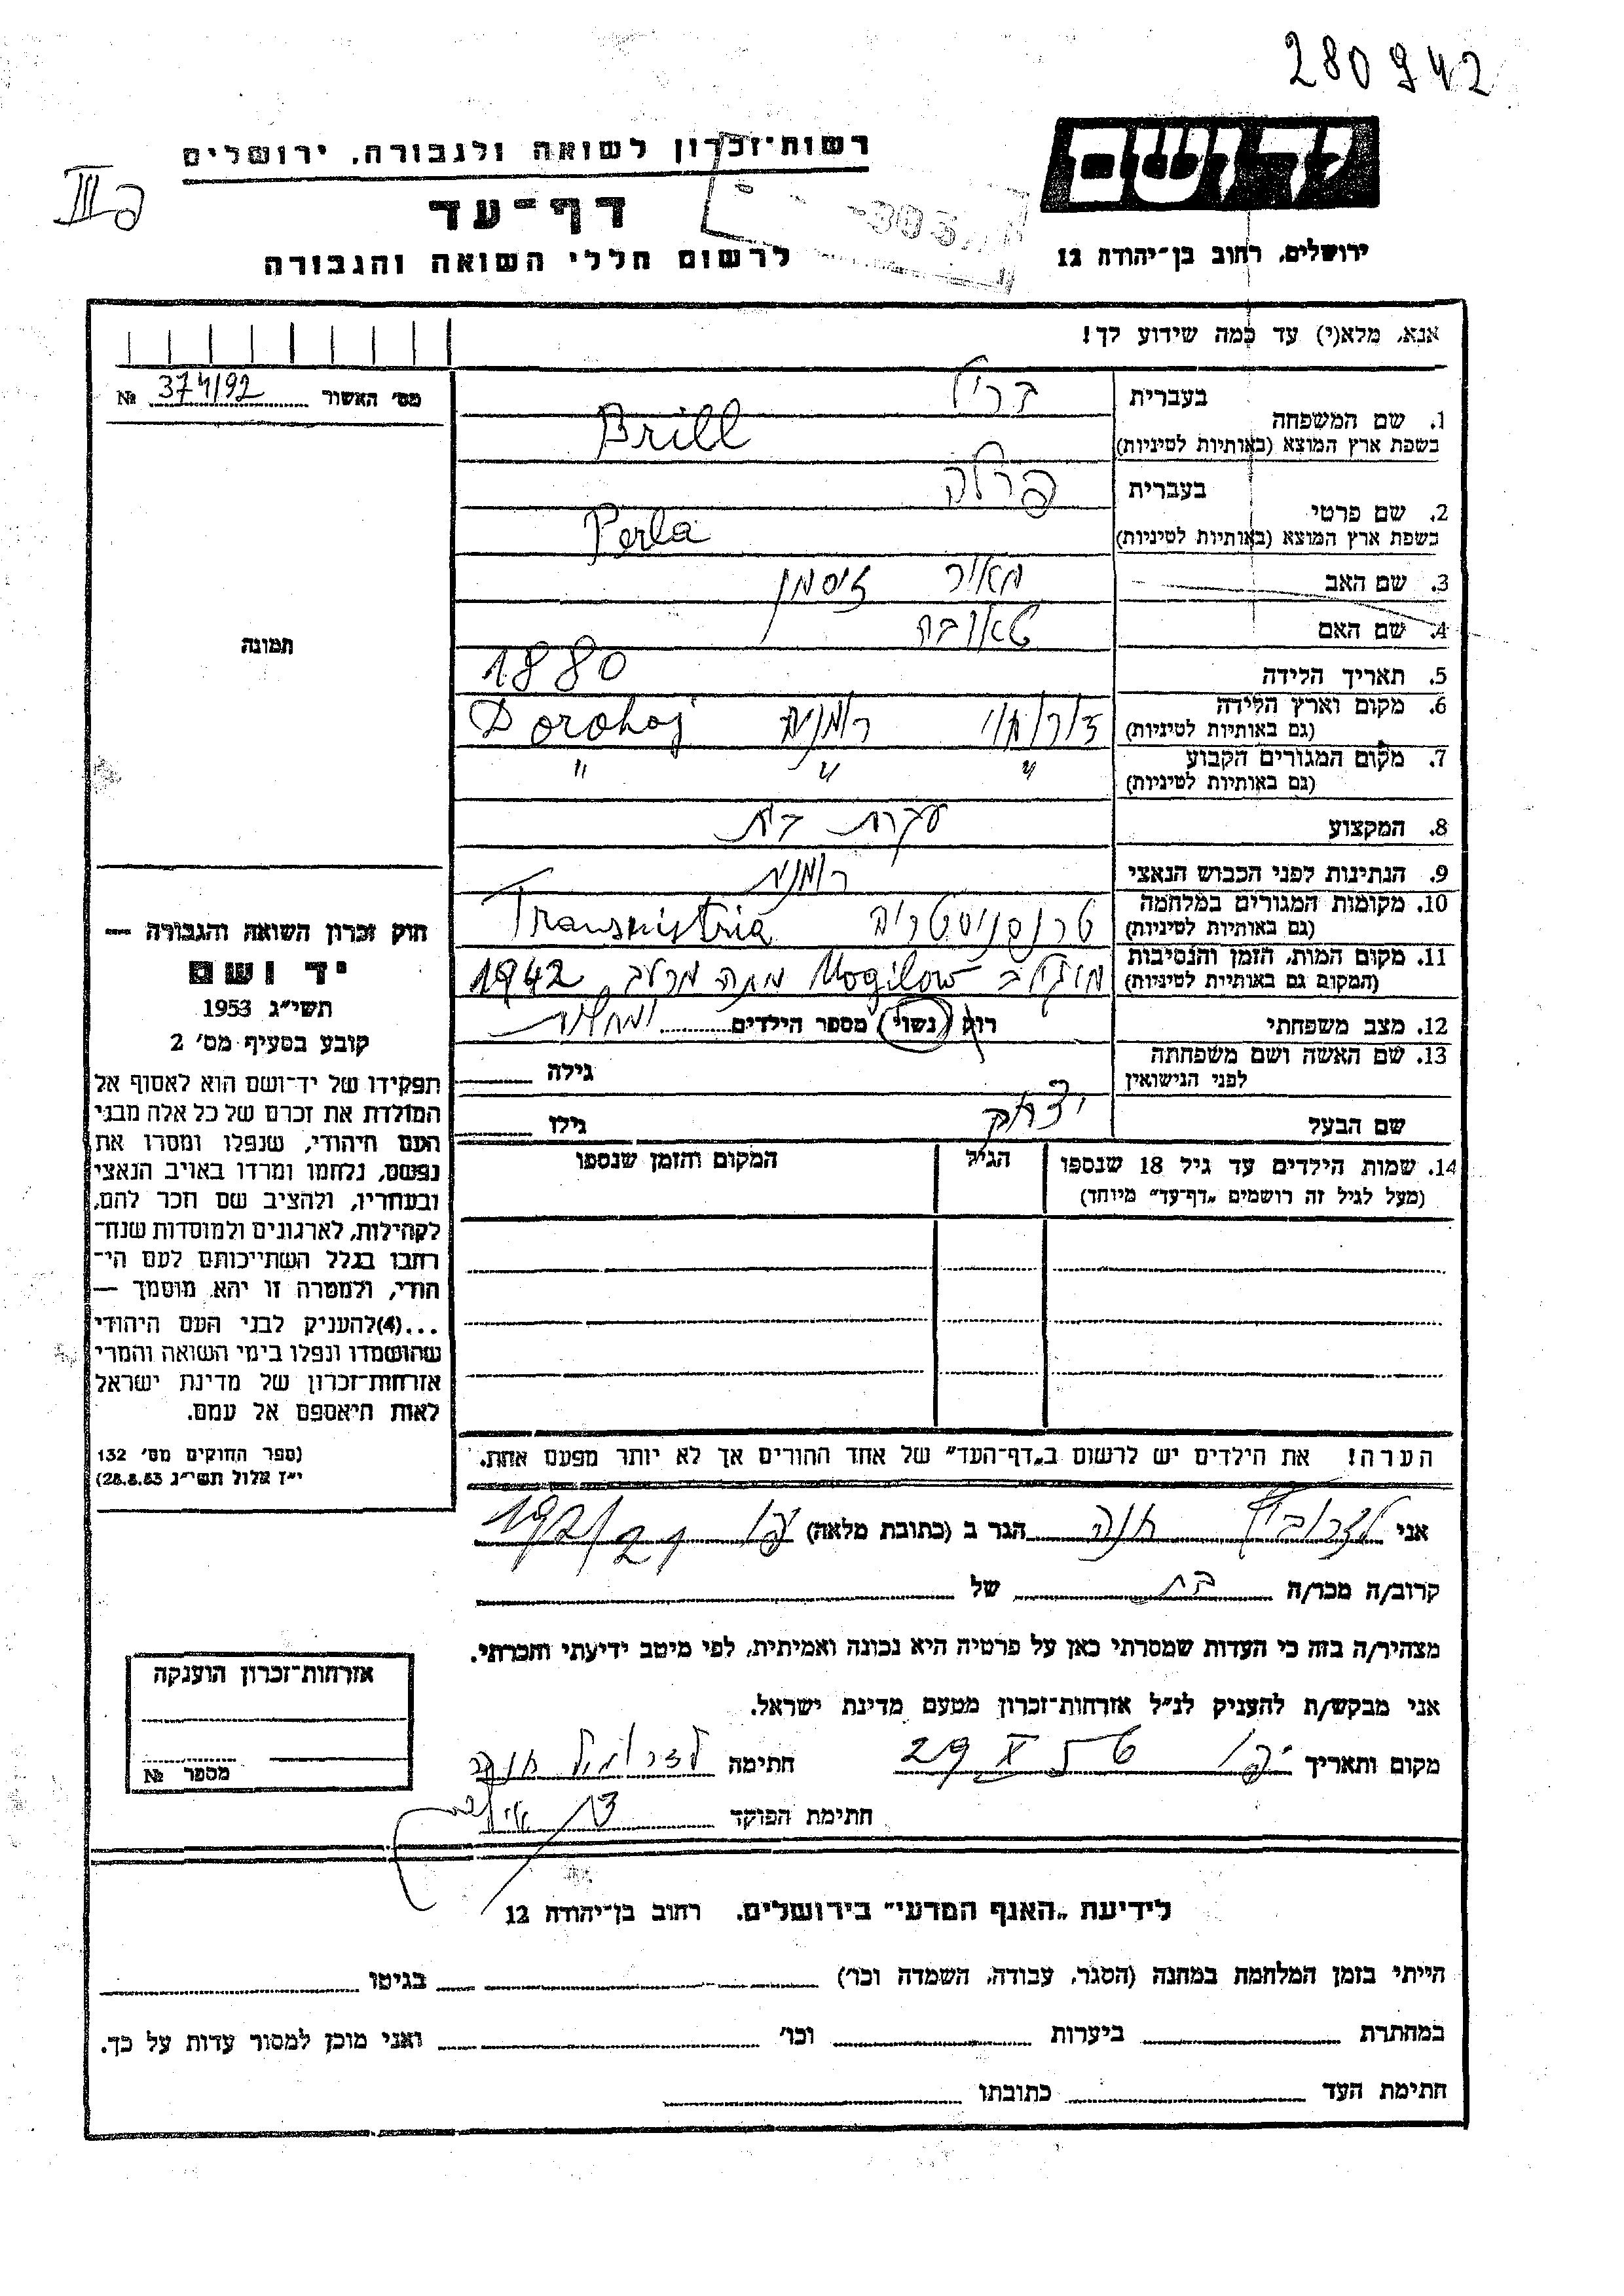 280942
רשות־זכרון לשואה ולגבורה, ירושלים
יד ושם
דף־עד
לרשום חללי השואה והגבורה
ירושלים, רחוב בן־יהודה 12
אנא, מלא(י) עד כמה שידוע לך!
מס׳ האשור № 374/92
תמונה
1. שם המשפחה
בעברית בריל
בשפת ארץ המוצא (באותיות לטיניות) Brill
2. שם פרטי
בעברית פרלה
בשפת ארץ המוצא (באותיות לטיניות) Perla
3. שם האב מאיר זיסמן
4. שם האם טאובה
5. תאריך הלידה 1880
6. מקום וארץ הלידה דורוחוי רומניה Dorohoj
(גם באותיות לטיניות)
7. מקום המגורים הקבוע " " "
(גם באותיות לטיניות)
8. המקצוע עקרת בית
9. הנתינות לפני הכבוש הנאצי רומנית
10. מקומות המגורים במלחמה טרנסניסטריה Transnistria
(גם באותיות לטיניות)
11. מקום המות, הזמן והנסיבות מוגילוב Mogilow מתה מרעב 1942
(המקום גם באותיות לטיניות)
12. מצב משפחתי רווק נשוי מספר הילדים
13. שם האשה ושם משפחתה
לפני הנישואין גילה
שם הבעל יצחק גילו
14. שמות הילדים עד גיל 18 שנספו הגיל המקום והזמן שנספו
(מעל לגיל זה רושמים „דף־עד״ מיוחד)
הערה! את הילדים יש לרשום ב„דף־העד״ של אחד ההורים אך לא יותר מפעם אחת.
חוק זכרון השואה והגבורה —
יד ושם
תשי״ג 1953
קובע בסעיף מס׳ 2
תפקידו של יד־ושם הוא לאסוף אל
המולדת את זכרם של כל אלה מבני
העם היהודי, שנפלו ומסרו את
נפשם, נלחמו ומרדו באויב הנאצי
ובעוזריו, ולהציב שם וזכר להם,
לקהילות, לארגונים ולמוסדות שנח־
רבו בגלל השתייכותם לעם הי־
הודי, ולמטרה זו יהא מוסמך —
...(4)להעניק לבני העם היהודי
שהושמדו ונפלו בימי השואה והמרי
אזרחות־זכרון של מדינת ישראל
לאות היאספם אל עמם.
(ספר החוקים מס׳ 132
י״ז אלול תשי״ג 28.8.53)
אני חנה הגר ב (כתובת מלאה) יפו
קרוב/ה מכר/ה בת של
מצהיר/ה בזה כי העדות שמסרתי כאן על פרטיה היא נכונה ואמיתית, לפי מיטב ידיעתי והכרתי.
אני מבקש/ת להעניק לנ״ל אזרחות־זכרון מטעם מדינת ישראל.
מקום ותאריך יפו 29 X 56 חתימה
חתימת הפוקד
אזרחות־זכרון הוענקה
מספר №
לידיעת „האגף המדעי״ בירושלים, רחוב בן־יהודה 12
הייתי בזמן המלחמה במחנה (הסגר, עבודה, השמדה וכו׳) בגיטו
במחתרת ביערות וכו׳ ואני מוכן למסור עדות על כך.
חתימת העד כתובתו